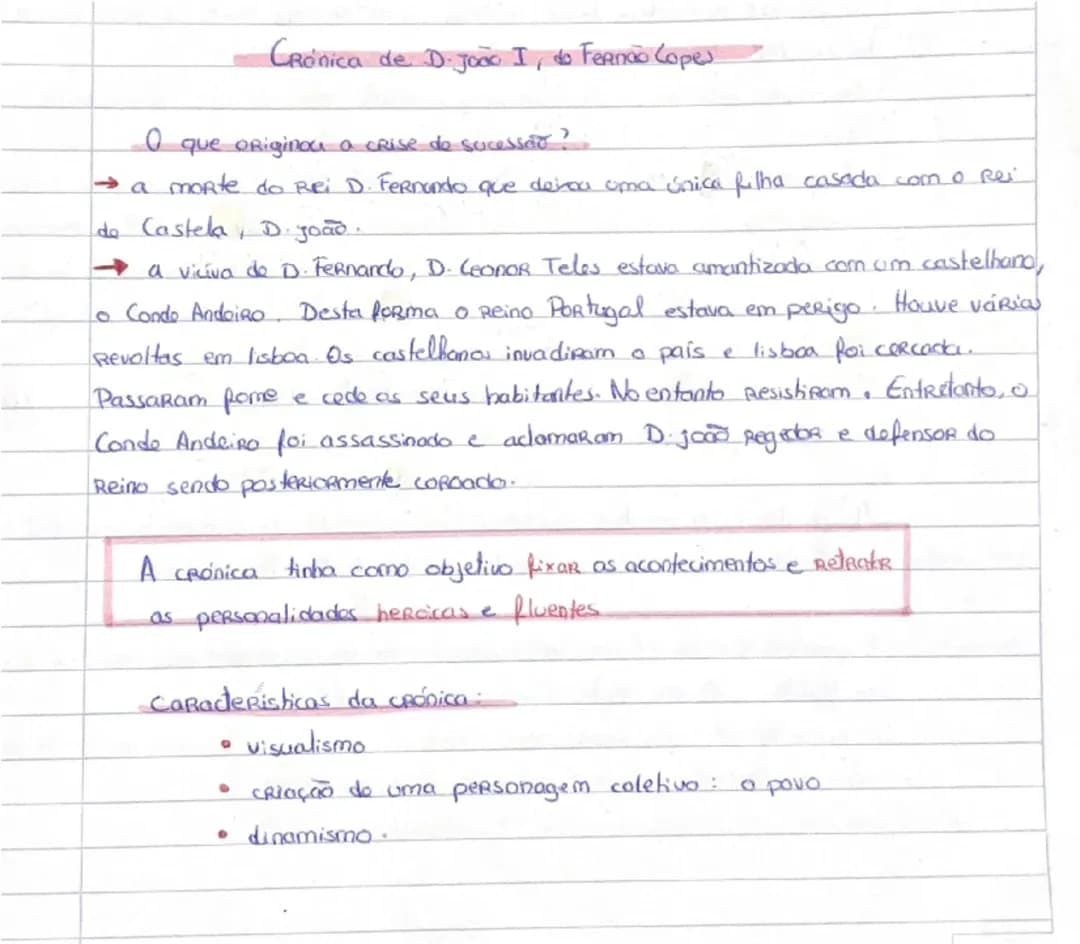 Crónica de D. João I, de Fernão Lopes
O que originou a crise de sucessão?
→ a morte do Rei D. Fernando que deixou uma única filha casada com o Rei
de Castela, D. João.
→ a viúva de D. Fernando, D. Leonor Teles estava amantizada com um castelhano,
o Conde Andeiro. Desta forma o reino Portugal estava em perigo. Houve várias
revoltas em lisboa. Os castelhanos invadiram o país e lisboa foi cercada.
Passaram fome e cede os seus habitantes. No entanto resistiram. Entretanto, o
Conde Andeiro foi assassinado e aclamaram D. João regedor e defensor do
Reino sendo posteriormente coroado.
A crónica tinha como objetivo fixar os acontecimentos e retratar
as personalidades heroicas e fluentes
Características da crónica:
• visualismo
• criação de uma personagem coletiva: o povo
• dinamismo.